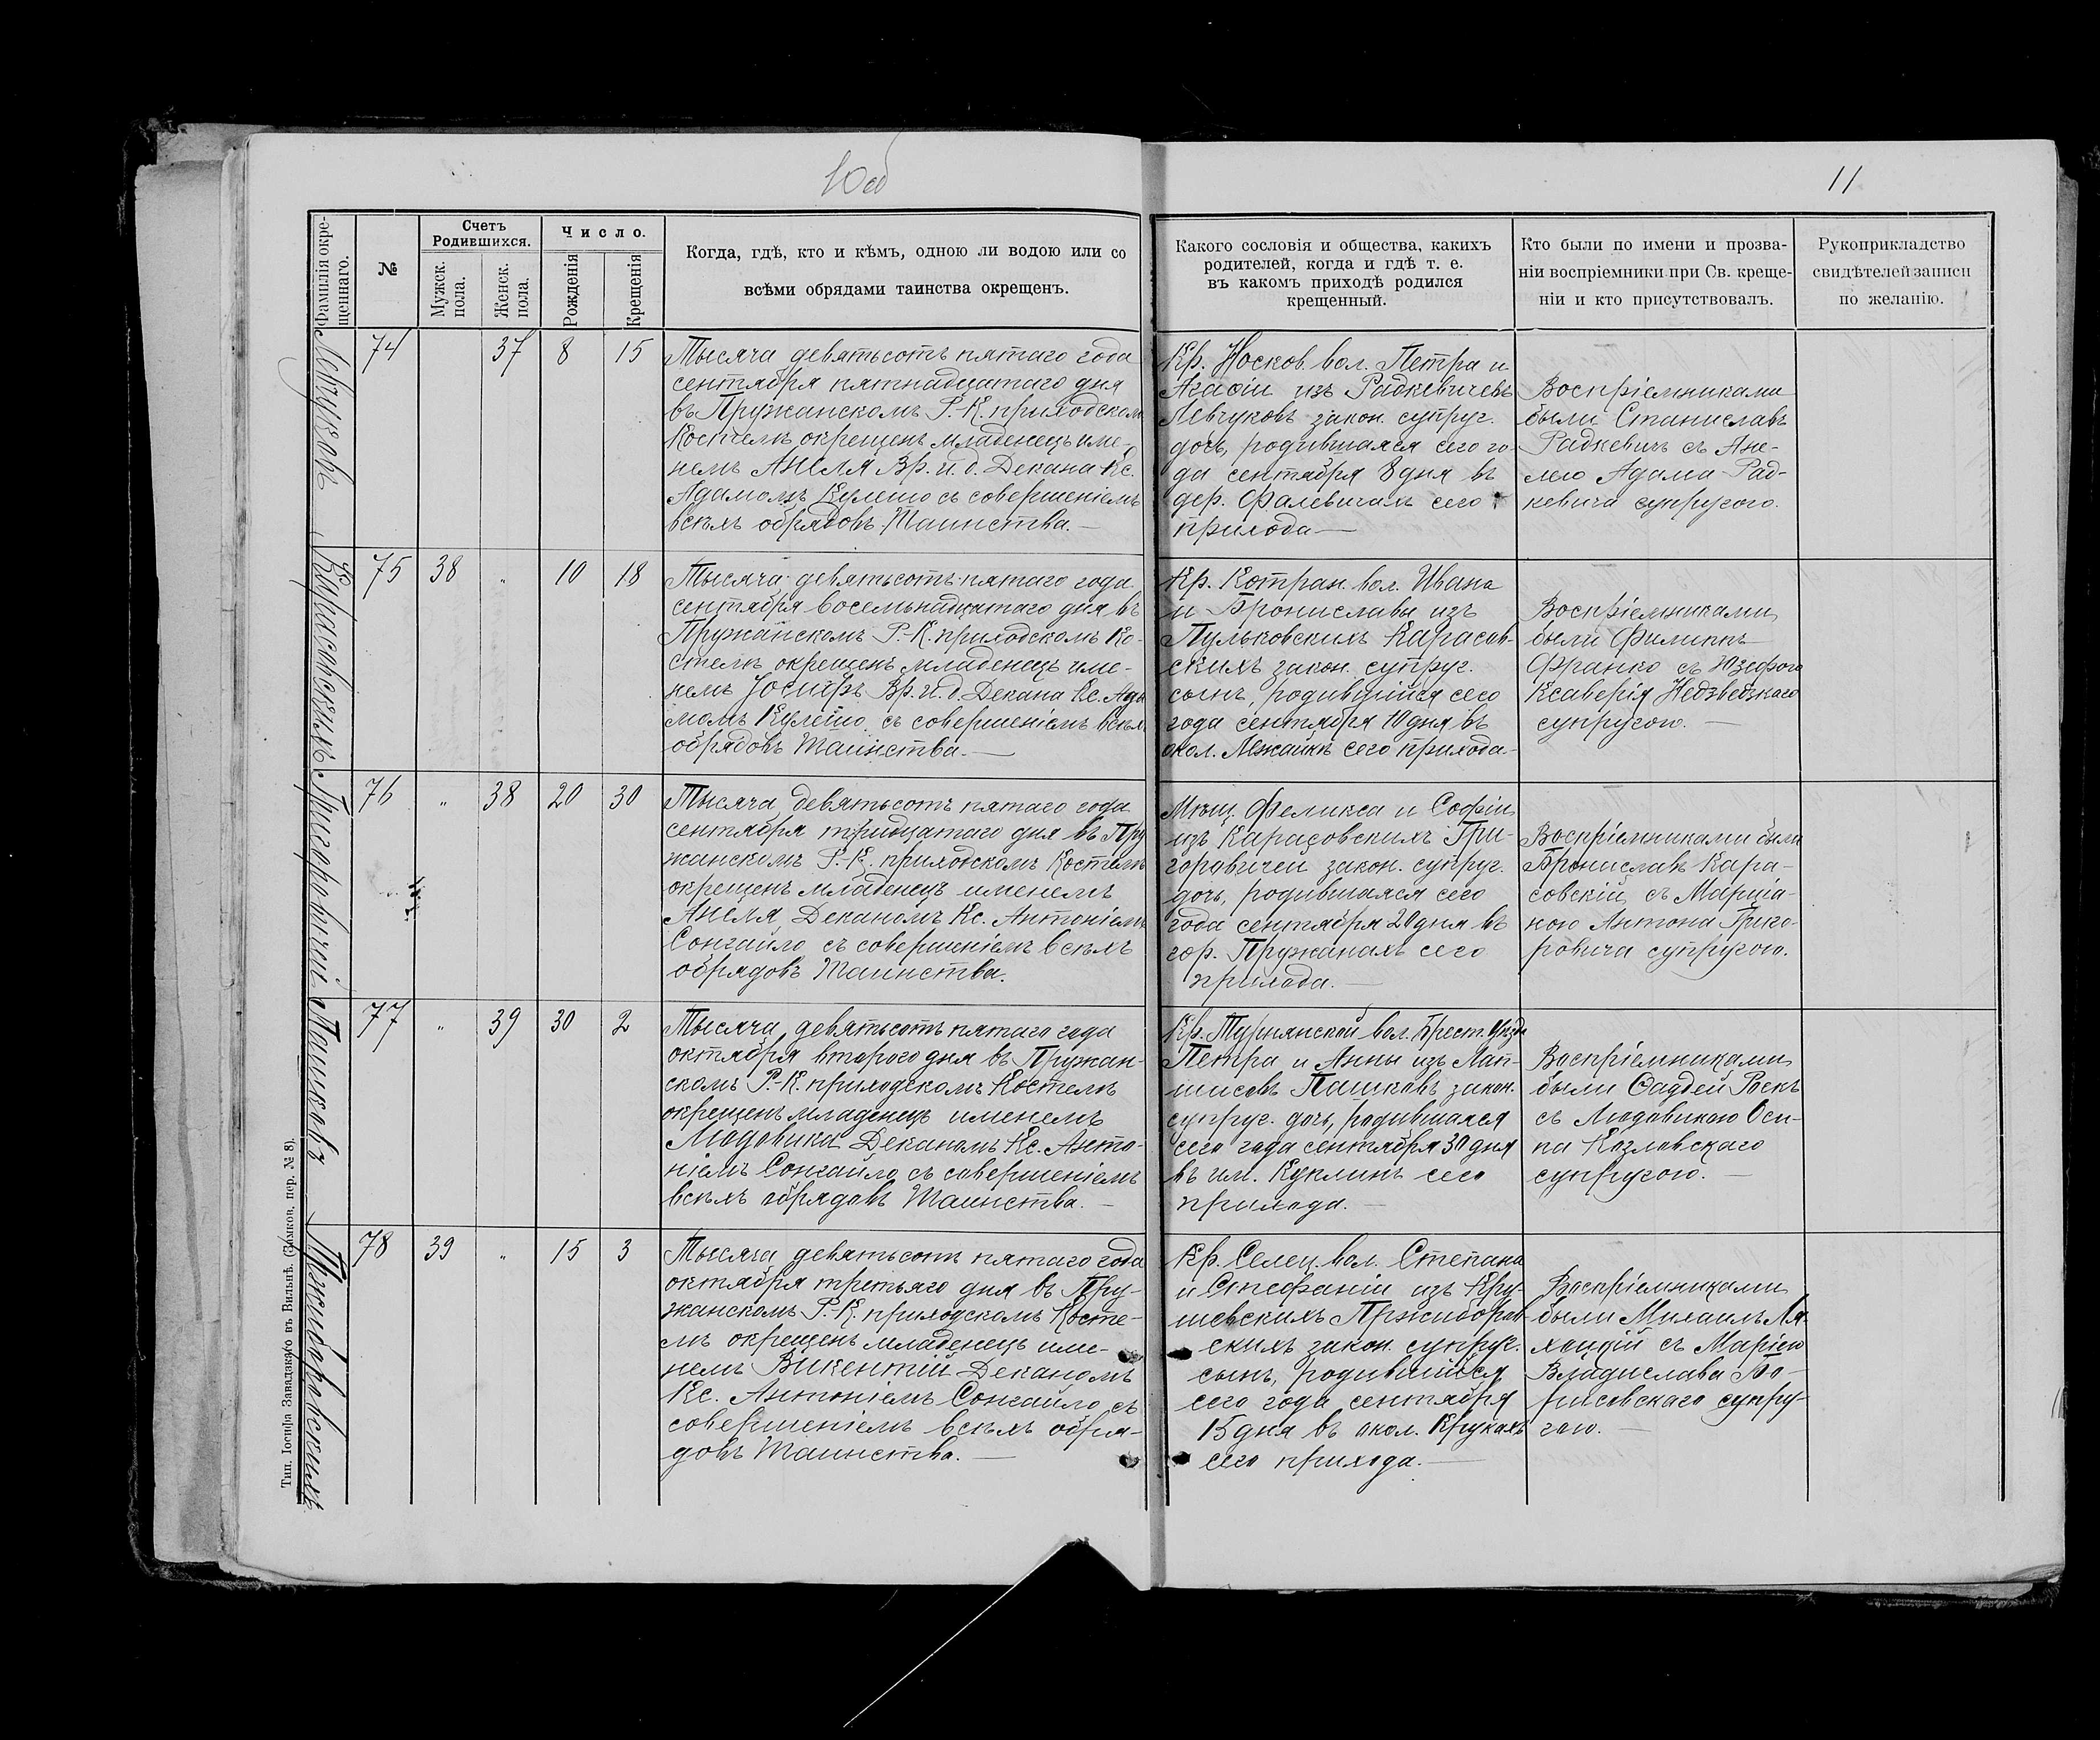 10об
11
Фамилія окре-
щеннаго.
№
Счетъ
Родившихся.
Мужск.
пола.
Женск.
пола.
Число.
Рожденія
Крещенія
Когда, гдѣ, кто и кѣмъ, одною ли водою или со
всѣми обрядами таинства окрещенъ.
Какого сословія и общества, какихъ
родителей, когда и гдѣ т. е.
въ какомъ приходѣ родился
крещенный.
Кто были по имени и прозва-
ніи воспріемники при Св. креще-
ніи и кто присутствовалъ.
Рукоприкладство
свидѣтелей записи
по желанію.
Левчуковъ
74
37
8
15
Тысяча девятьсотъ пятаго года
сентября пятнадцатаго дня
въ Пружанскомъ Р.-К. приходском
Костелѣ окрещенъ младенецъ име-
немъ Анеля Вр. и. д. Декана Кс.
Адамомъ Кулешо съ совершеніемъ
всѣхъ обрядовъ Таинства.—
Кр. Носков. вол. Петра и
Агафіи изъ Радкевичевъ
Левчуковъ закон. супруг.
дочь, родившаяся сего го-
да сентября 8 дня въ
дер. Фалевичах сего
прихода—
Воспріемниками
были Станиславъ
Радкевичъ съ Ане-
лею Адама Рад-
кевича супругою.
Карасовскихъ
75
38
"
10
18
Тысяча девятьсотъ пятаго года
сентября восемьнадцатаго дня въ
Пружанскомъ Р.-К. приходскомъ Ко-
стелѣ окрещенъ младенецъ име-
немъ Іосифъ Вр. и. д. Декана Кс. Ада
момъ Кулешо съ совершеніемъ всѣхъ
обрядовъ Таинства.—
Кр. Котран. вол. Ивана
и Брониславы изъ
Пульковскихъ Карасов-
скихъ закон. супруг.
сынъ, родившійся сего
года сентября 10 дня въ
окол. Лежайкѣ сего прихода-
Воспріемниками
были Филиппъ
Франко съ Юзефою
Ксаверія Недзведзкаго
супругою.—
Григоровичей
76
"
38
20
30
Тысяча девятьсотъ пятаго года
сентября тридцатаго дня въ Пру
жанскомъ Р.-К. приходскомъ Костелѣ
окрещенъ младенецъ именемъ
Анеля Деканомъ Кс. Антоніемъ
Сонгайло съ совершеніемъ всѣхъ
обрядовъ Таинства.
Мѣщ. Феликса и Софіи
изъ Карасовскихъ Гри-
горовичей закон. супруг.
дочь, родившаяся сего
года сентября 20 дня въ
гор. Пружанахъ сего
прихода.—
Воспріемниками были
Брониславъ Кара-
совскій съ Марціа-
ною Антона Григо-
ровича супругою.
Пашковъ
77
"
39
30
2
Тысяча девятьсотъ пятаго года
октября второго дня въ Пружан-
скомъ Р.-К. приходскомъ Костелѣ
окрещенъ младенецъ именемъ
Людовика Деканомъ Кс. Анто-
ніемъ Сонгайло съ совершеніемъ
всѣхъ обрядовъ Таинства.—
Кр. Турнянской вол. Брест. Уѣзда
Петра и Анны изъ Лап-
шисовъ Пашковъ закон.
супруг. дочь, родившаяся
сего года сентября 30 дня
въ им. Куклинъ сего
прихода.—
Воспріемниками
были Фаддей Роекъ
съ Людовикою Оси-
па Козловскаго
супругою.—
Пржиборовскихъ
78
39
"
15
3
Тысяча девятьсотъ пятаго года
октября третьяго дня въ Пру-
жанскомъ Р.-К. приходскомъ Косте-
лѣ окрещенъ младенецъ име-
немъ Викентій Деканомъ
Кс. Антоніемъ Сонгайло съ
совершеніемъ всѣхъ обря-
довъ Таинства.—
Кр. Селец. вол. Степана
и Стефаніи изъ Кру-
шевскихъ Пржиборов-
скихъ закон. супруг.
сынъ, родившійся
сего года сентября
15 дня въ окол. Крукахъ
сего прихода.—
Воспріемниками
были Михаилъ Ля
хоцкій съ Маріею
Владислава Бо-
рисовскаго супру-
гою.—
Тип. Іосифа Завадзкаго въ Вильнѣ. (Замков. пер. № 8).